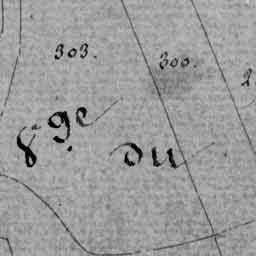 303.
300.
8ge du